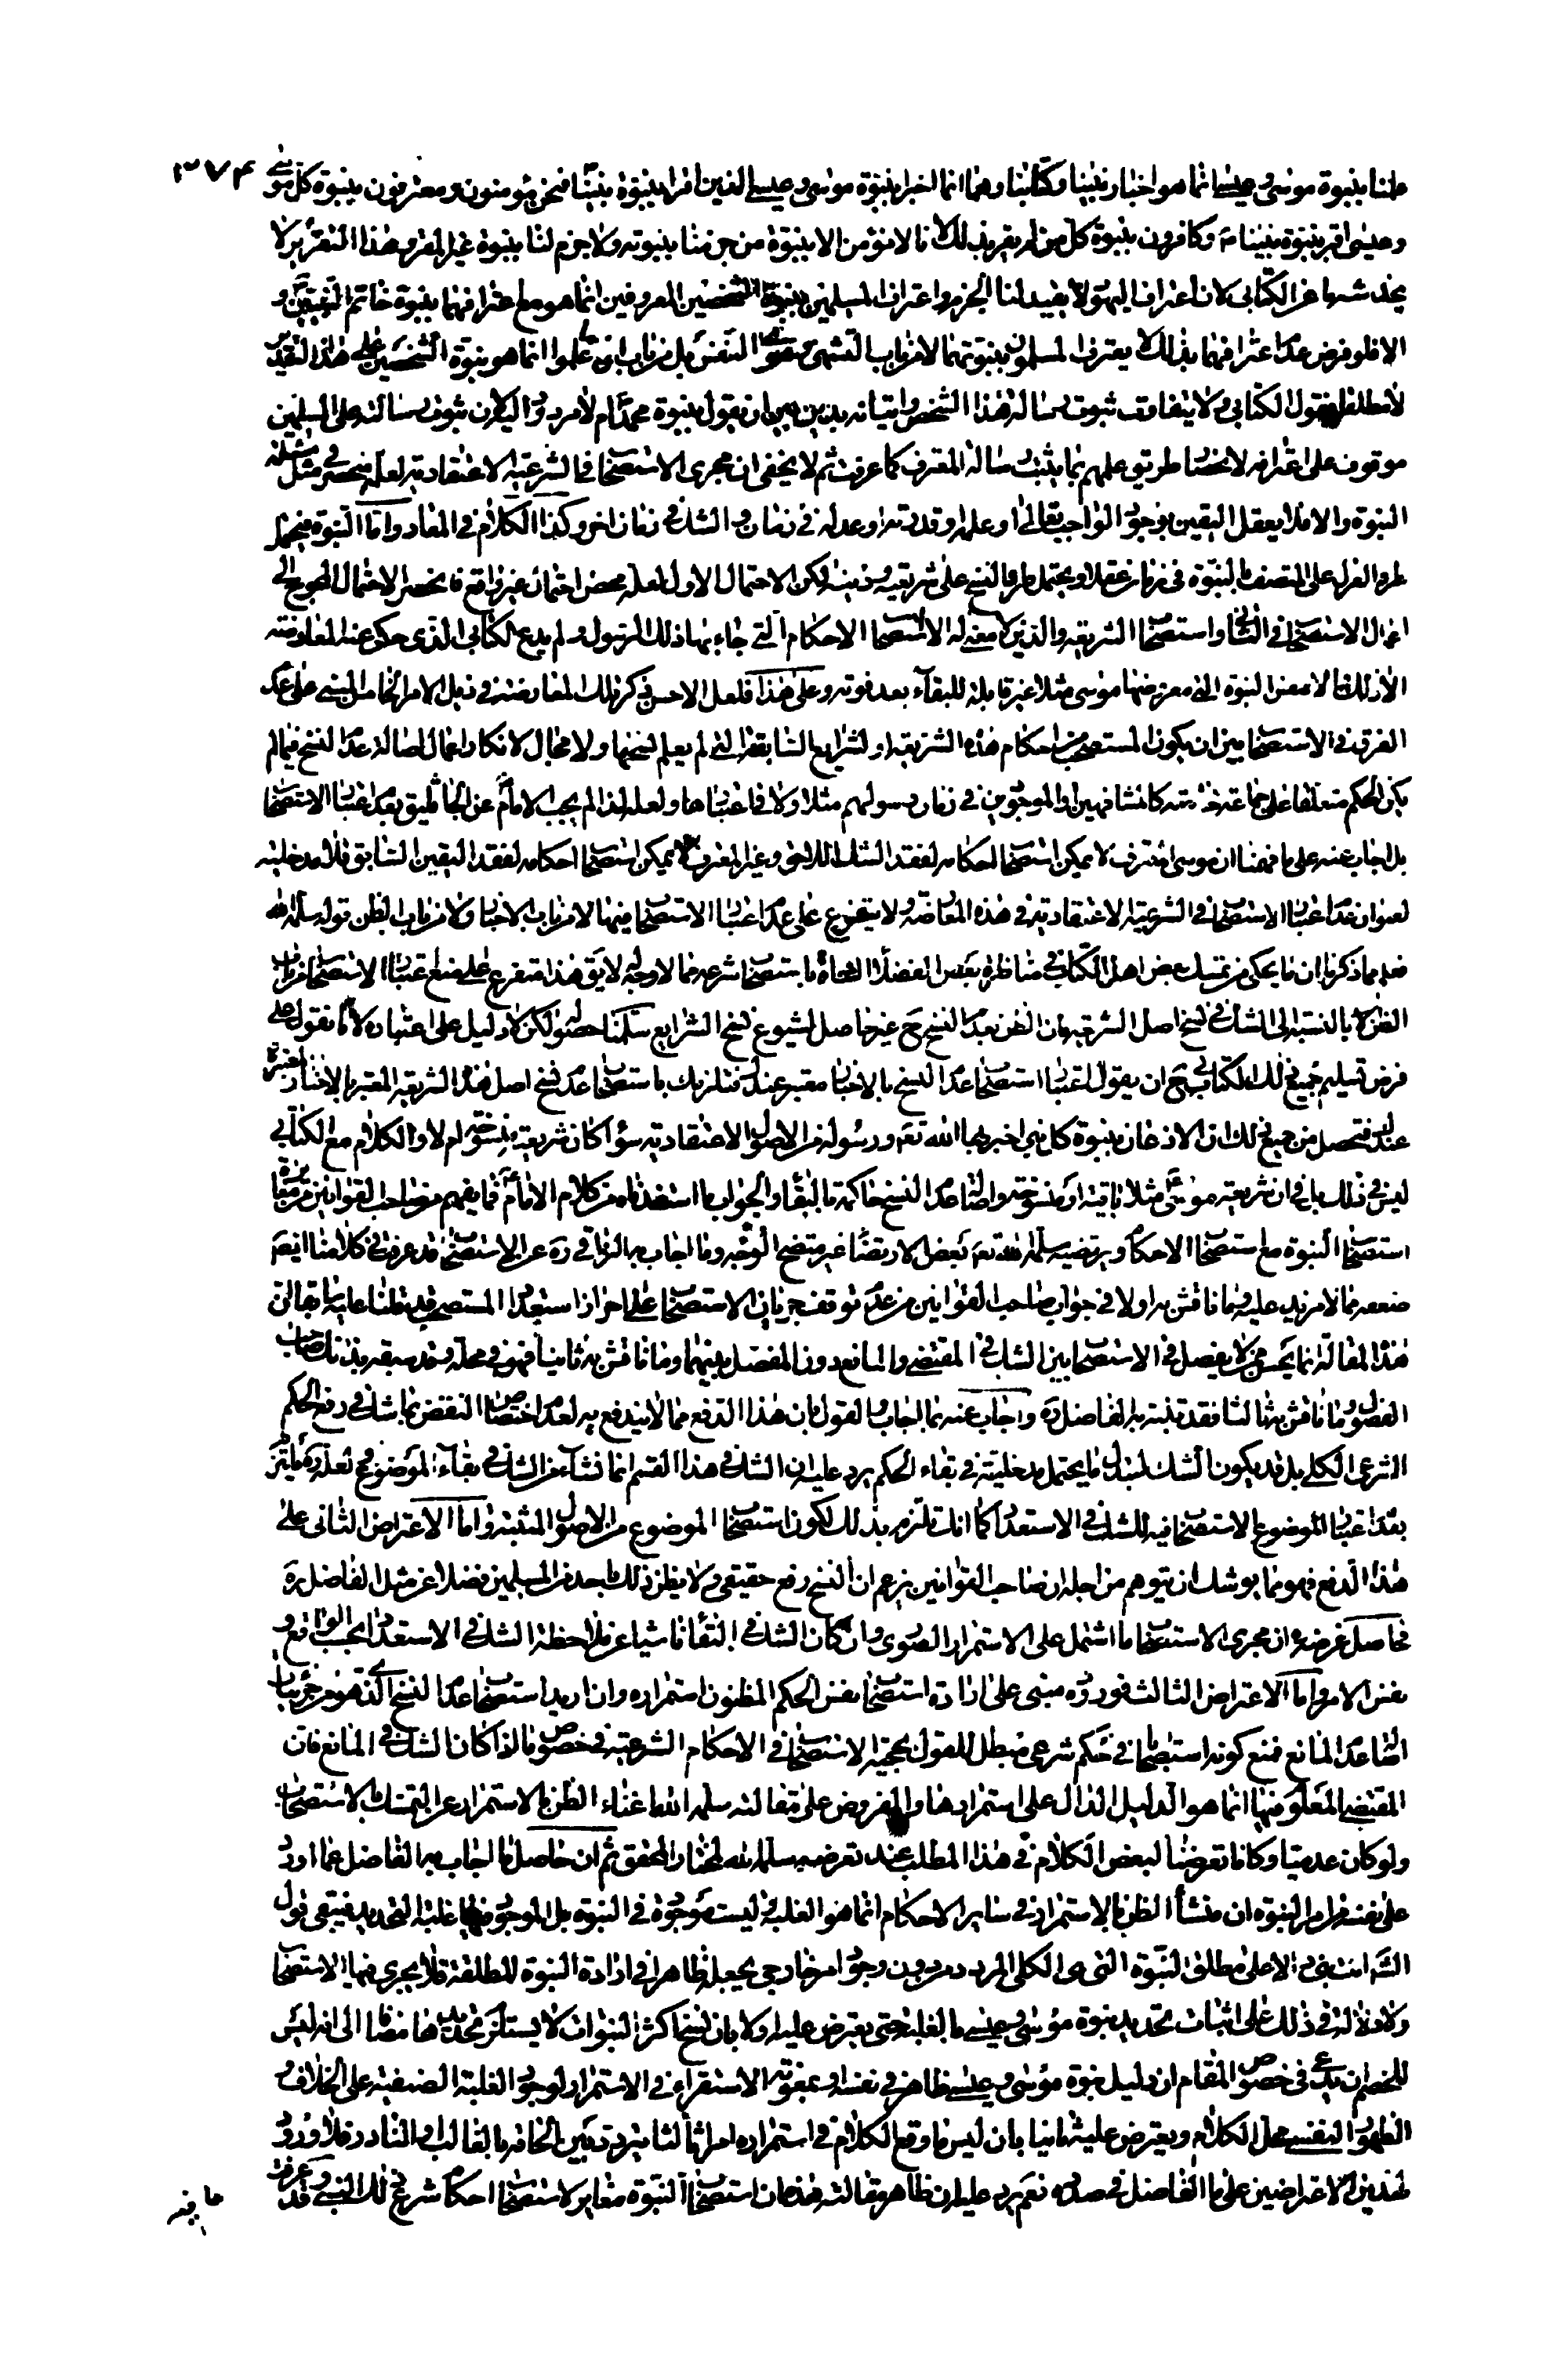 ٣٧٤
علمنا بنبوة موسى وعيسى انما هو اخبار نبينا وكتابنا وهما انما اخبرا بنبوة موسى وعيسى الذين اقرا بنبوة نبينا فنحن مؤمنون ومعترفون بنبوة كل موسى
وعيسى اقر بنبوة نبينا مـ وكافرون بنبوة كل من لم يقر بذلك لانا لا نؤمن الا بنبوة من جزمنا بنبوته ولا جزم لنا بنبوة غير المقر وهذا التقرير لا
يخدشه اعتراف اليهود لا يفيد لنا الجزم واعتراف المسلمين بنبوة الشخصين المعروفين انما هو مع اعترافهما بنبوة خاتم النبيين و
الا فلو فرض عدم اعترافهما بذلك لا يعترف المسلمون بنبوتهما لا من باب التشهي النفس بل من باب ان ما علموا انما هو نبوة الشخصين على هذا التقدير
لا مطلقا فقول الكتابي لا يتفاوت ثبوت رسالة هذا الشخص واتيانه بدين بين ان يقول بنبوة محمد ام لا مردود اليه لان ثبوت رسالته على المسلمين
موقوف على اعترافه لانحصار طريق علمهم بما يثبت رسالة المعترف كما عرفت ثم لا يخفى ان مجرى الاستصحاب في الشرعية الاعتقادية لعله منحصر في مثل مسئلة
النبوة والا فلا يعقل اليقين بوجود الواجب تعالى او علمه او قدرته او عدله في زمان والشك في زمان اخر وكذا الكلام في المعاد واما النبوة فيحتمل
طرو العزل على المتصف بالنبوة في زمان عقلا ويحتمل طرو النسخ على شريعته ودينه لكن الاحتمال الاول لعله محض احتمال غير واقع فانحصر الاحتمال المحوج الى
اعمال الاستصحاب في الثاني واستصحاب الشريعة والدين لا معنى له الا استصحاب الاحكام التي جاء بها ذلك الرسول ولم يدع الكتابي الذي حكى عنه المعارضة
الا ذلك اذ لا معنى النبوة التي معرضها موسى مثلا غير قابلة للبقاء بعد فوته وعلى هذا فلعل الاحسن ذكر تلك المعارضة في ذيل الامر الخامس المبني على عدم
الفرق في الاستصحاب بين ان يكون المستصحب من احكام هذه الشريعة او الشرايع السابقة التي لم يعلم نسخها ولا مجال لانكار اعمال اصالة عدم النسخ فيما لم
يكن الحكم متعلقا على جماعة خاصة كالمشافهين او الموجودين في زمان رسولهم مثلا ولا في اعتبارها ولعله لذا لم يجب الامام عن الجاثليق بعدم اعتبار الاستصحاب
بل اجاب عنه على ما فهمنا ان موسى المعترف لا يمكن استصحاب احكامه لفقد الشك اللاحق وغير المعترف لا يمكن استصحاب احكامه لفقد اليقين السابق فلا مدخلية
لعنوان عدم اعتبار الاستصحاب في الشرعية الاعتقادية في هذه المعارضة ولا يتفرع على عدم اعتبار الاستصحاب فيها لا من باب الاخبار ولا من باب الظن قوله سلمه الله
فعلم مما ذكرنا ان ما يحكى من تمسك بعض اهل الكتاب في مناظرة بعض الفضلاء السادة باستصحاب شرعه مما لا وجه له لا يق هذا متفرع على منع اعتبار الاستصحاب من باب
الظن لا بالنسبة الى الشك في نسخ اصل الشريعة فان الظن بعدم النسخ ح غير حاصل لشيوع نسخ الشرايع سلمنا حصوله لكن لا دليل على اعتباره لانا نقول على
فرض تسليم جميع ذلك للكتابي ح ان يقول اعتبار استصحاب عدم النسخ بالاخبار معتبر عندك فنلزمك باستصحاب عدم نسخ اصل هذه الشريعة المعتبر بالاخبار المعتبرة
عندك فتحصل من جميع ذلك ان الاذعان بنبوة كل نبي اخبر بها الله تعم ورسوله من الاصول الاعتقادية سواء كان شريعته منسوخة ام لا والكلام مع الكتابي
ليس في ذلك بل في ان شريعة موسى مثلا باقية او منسوخة واصالة عدم النسخ حاكمة بالبقاء والجواب ما استفدناه من كلام الامام فما يفهم من صاحب القوانين من مغايرة
استصحاب النبوة مع استصحاب الاحكام ويرتضيه سلمه الله تعم بعض الارتضاء غير متضح الوجه وما اجاب به النراقي ره عن الاستصحاب قد عرفت في كلامنا ايضا
ضعفه مما لا مزيد عليه وما ناقش به اولا في جواب صاحب القوانين من عدم توقف جريان الاستصحاب على احراز استعداد المستصحب فقد قلنا عليه سابقا ان
هذه المقالة انما يحسن ممن لا يفصل في الاستصحاب بين الشك في المقتضي والمانع دون المفصل بينهما وما ناقش به ثانيا فهو في محله وقد سبقه بذلك صاحب
الفصول وما ناقش به ثالثا فقد تنبه به الفاضل ره واجاب عنه بما اجاب والقول بان هذا الدفع مما لا يندفع به لعدم اختصاص النقض بما شك في رفع الحكم
الشرعي الكلي بل قد يكون الشك لتبدل ما يحتمل مدخليته في بقاء الحكم يرد عليه ان الشك في هذا القسم انما نشاء من الشك في بقاء الموضوع فح لعله ره يلتزم
بعدم اعتبار الموضوع الاستصحاب فيه للشك في الاستعداد كما انك تلتزم بذلك لكون استصحاب الموضوع من الاصول المثبتة واما الاعتراض الثاني على
هذا الدفع فهو مما يوشك ان يتوهم من اجله ان صاحب القوانين يزعم ان النسخ رفع حقيقي ولا يظن ذلك باحد من المسلمين فضلا عن مثل الفاضل ره
فحاصل غرضه ره ان مجرى الاستصحاب ما اشتمل على الاستمرار الصوري وان كان الشك في البقاء ناشيا عن ملاحظة الشك في الاستعداد بحسب الواقع و
نفس الامر واما الاعتراض الثالث فوروده مبني على ارادة استصحاب نفس الحكم المظنون استمراره وان اريد استصحاب عدم النسخ الذي هو من جزئيات
اصالة عدم المانع فمنع كونه استصحابا في حكم شرعي مبطل للقول بحجية الاستصحاب في الاحكام الشرعية في خصوص ما اذا كان الشك في المانع فان
المقتضي المعلوم فيها انما هو الدليل الدال على استمرارها والمفروض على مقالته سلمه الله اغناء الظن بالاستمرار عن التمسك بالاستصحاب
ولو كان عدميا وكانا تعرضنا لبعض الكلام في هذا المطلب عند تعرضه سلمه الله لمختار المحقق ثم ان حاصل ما اجاب به الفاضل عما اورد
على نفسه من امر النبوة ان منشأ الظن بالاستمرار في ساير الاحكام انما هو الغلبة وليست موجودة في النبوة بل الموجود فيها غلبة التحديد فيبقى قول
الله انت نبي دالا على مطلق النبوة التي هي الكلي المردد من دون وجود امر خارجي يجعله ظاهرا في ارادة النبوة المطلقة فلا يجري فيها الاستصحاب
ولا دلالة في ذلك على اثبات تحديد نبوة موسى وعيسى بالغلبة حتى يعترض عليه اولا بان نسخ اكثر النبوات لا يستلزم تحديدها مضافا الى انه ليس
للخصم ان يدعي في خصوص المقام ان دليل نبوة موسى وعيسى ظاهر في نفسه او بمعونة الاستقراء في الاستمرار لوجود الغلبة الصنفية على الخلاف و
الظهور النفسي محل الكلام ويعترض عليه ثانيا بان ليس ما وقع الكلام في استمراره امرا ثالثا يتردد بين الحاقه بالغالب او النادر فلا ورود
لهذين الاعتراضين على ما الفاضل في صدده نعم يرد عليه ان ظاهر مقالته هذه ان استصحاب النبوة مغاير لاستصحاب احكام شرع ذلك النبي وقد عرفت
ما فيه